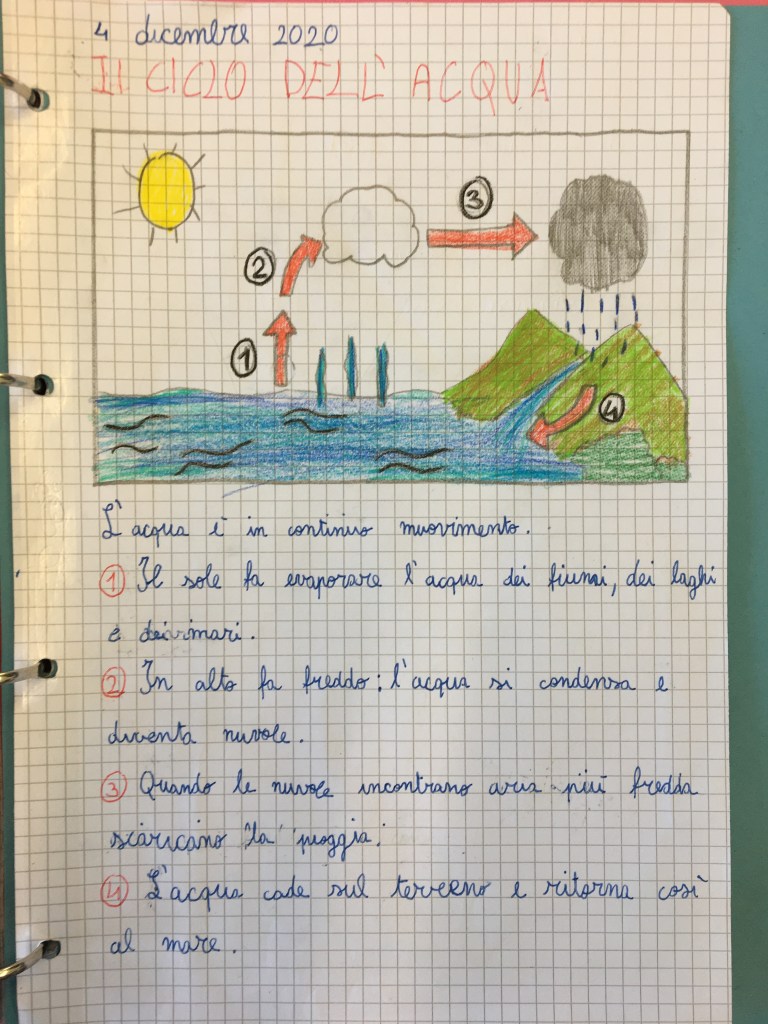 4 dicembre 2020
Il CICLO DELL'ACQUA
3
2
1
4
L'acqua è in continuo muovimento.
1 Il sole fa evaporare l'acqua dei fiumi, dei laghi
e dei mari.
2 In alto fa freddo: l'acqua si condensa e
diventa nuvole.
3 Quando le nuvole incontrano aria più fredda
scaricano la pioggia.
4 L'acqua cade sul terreno e ritorna così
al mare.